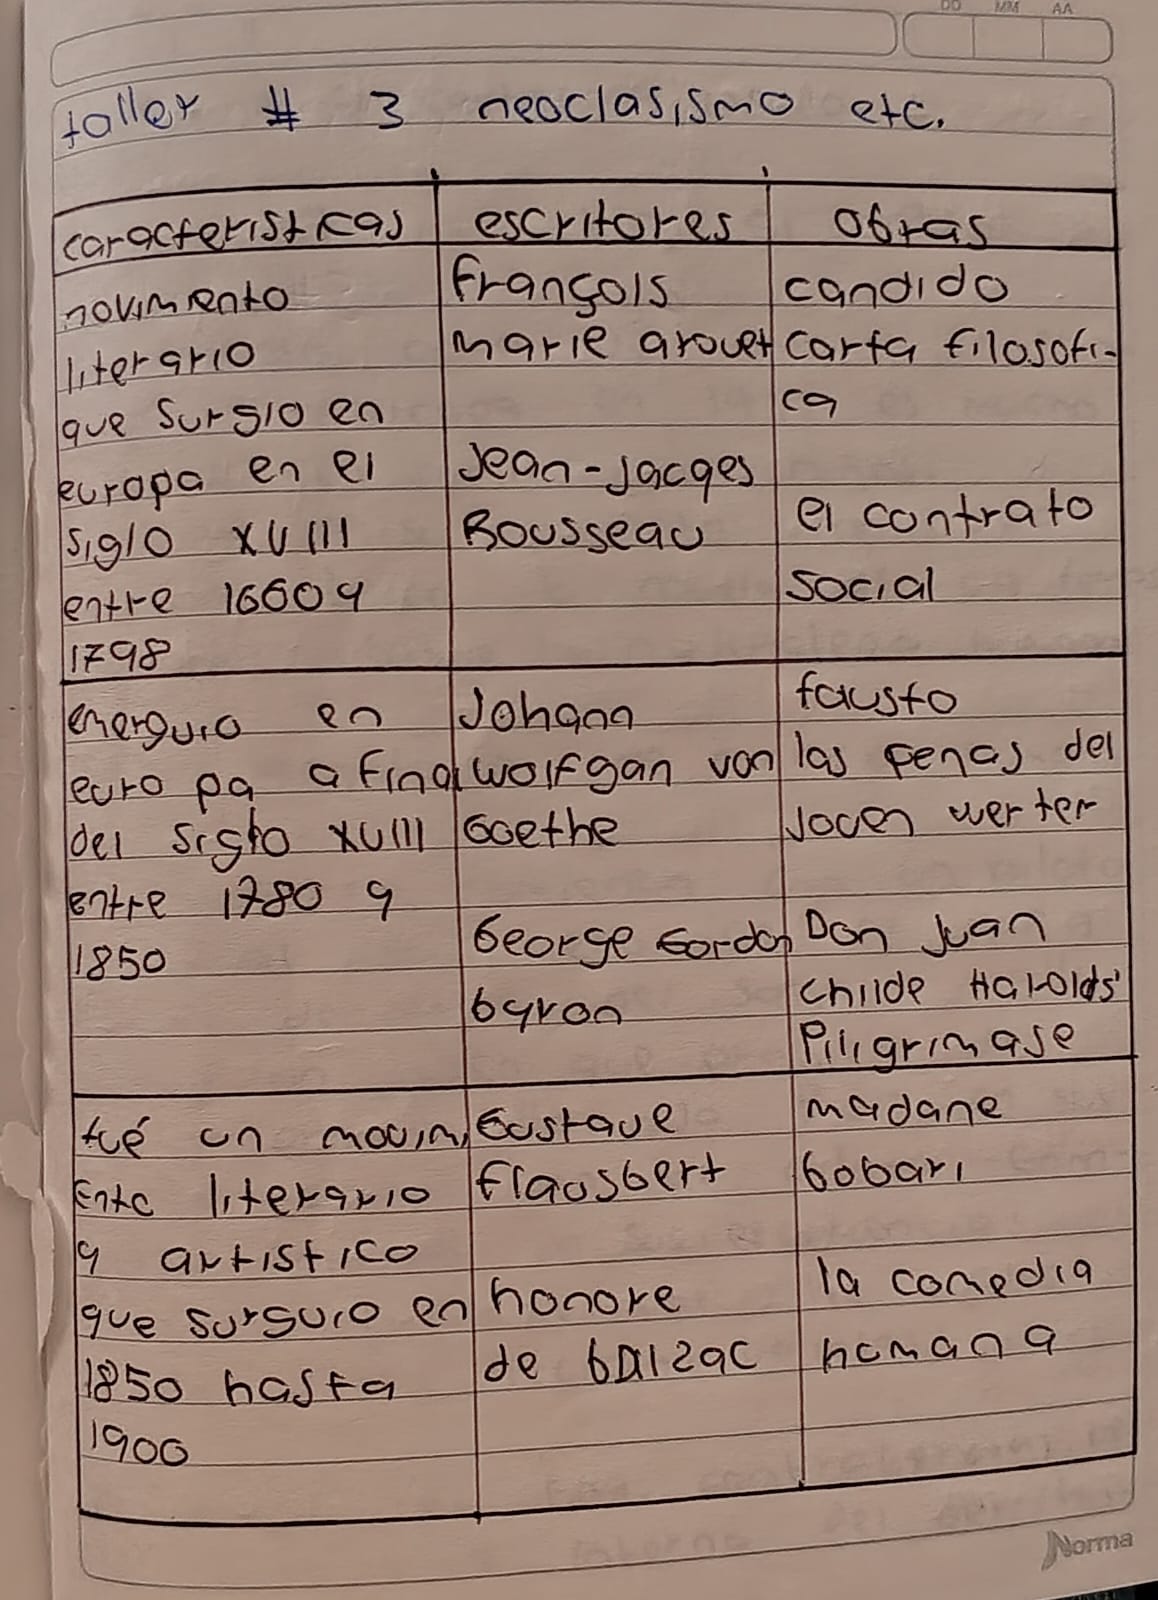 DD MM AA
taller # 3 neoclasismo etc.
caracteristicas escritores obras
movimiento
literario
que surgio en
europa en el
siglo XVIII
entre 1660 y
1798
François
Marie arouet
Jean-Jacqes
Rousseau
candido
carta filosofi-
ca
el contrato
social
emerguio en
europa a final
del siglo XVIII
entre 1780 y
1850
Johann
wolfgan von
Goethe
George Gordon
byron
fausto
las penas del
Joven werter
Don Juan
childe Harolds'
Piligrimase
fué un movimi
ento literario
y artistico
que surguio en
1850 hasta
1900
Gustave
flausbert
honore
de balzac
madane
bobari
la comedia
humana
Norma